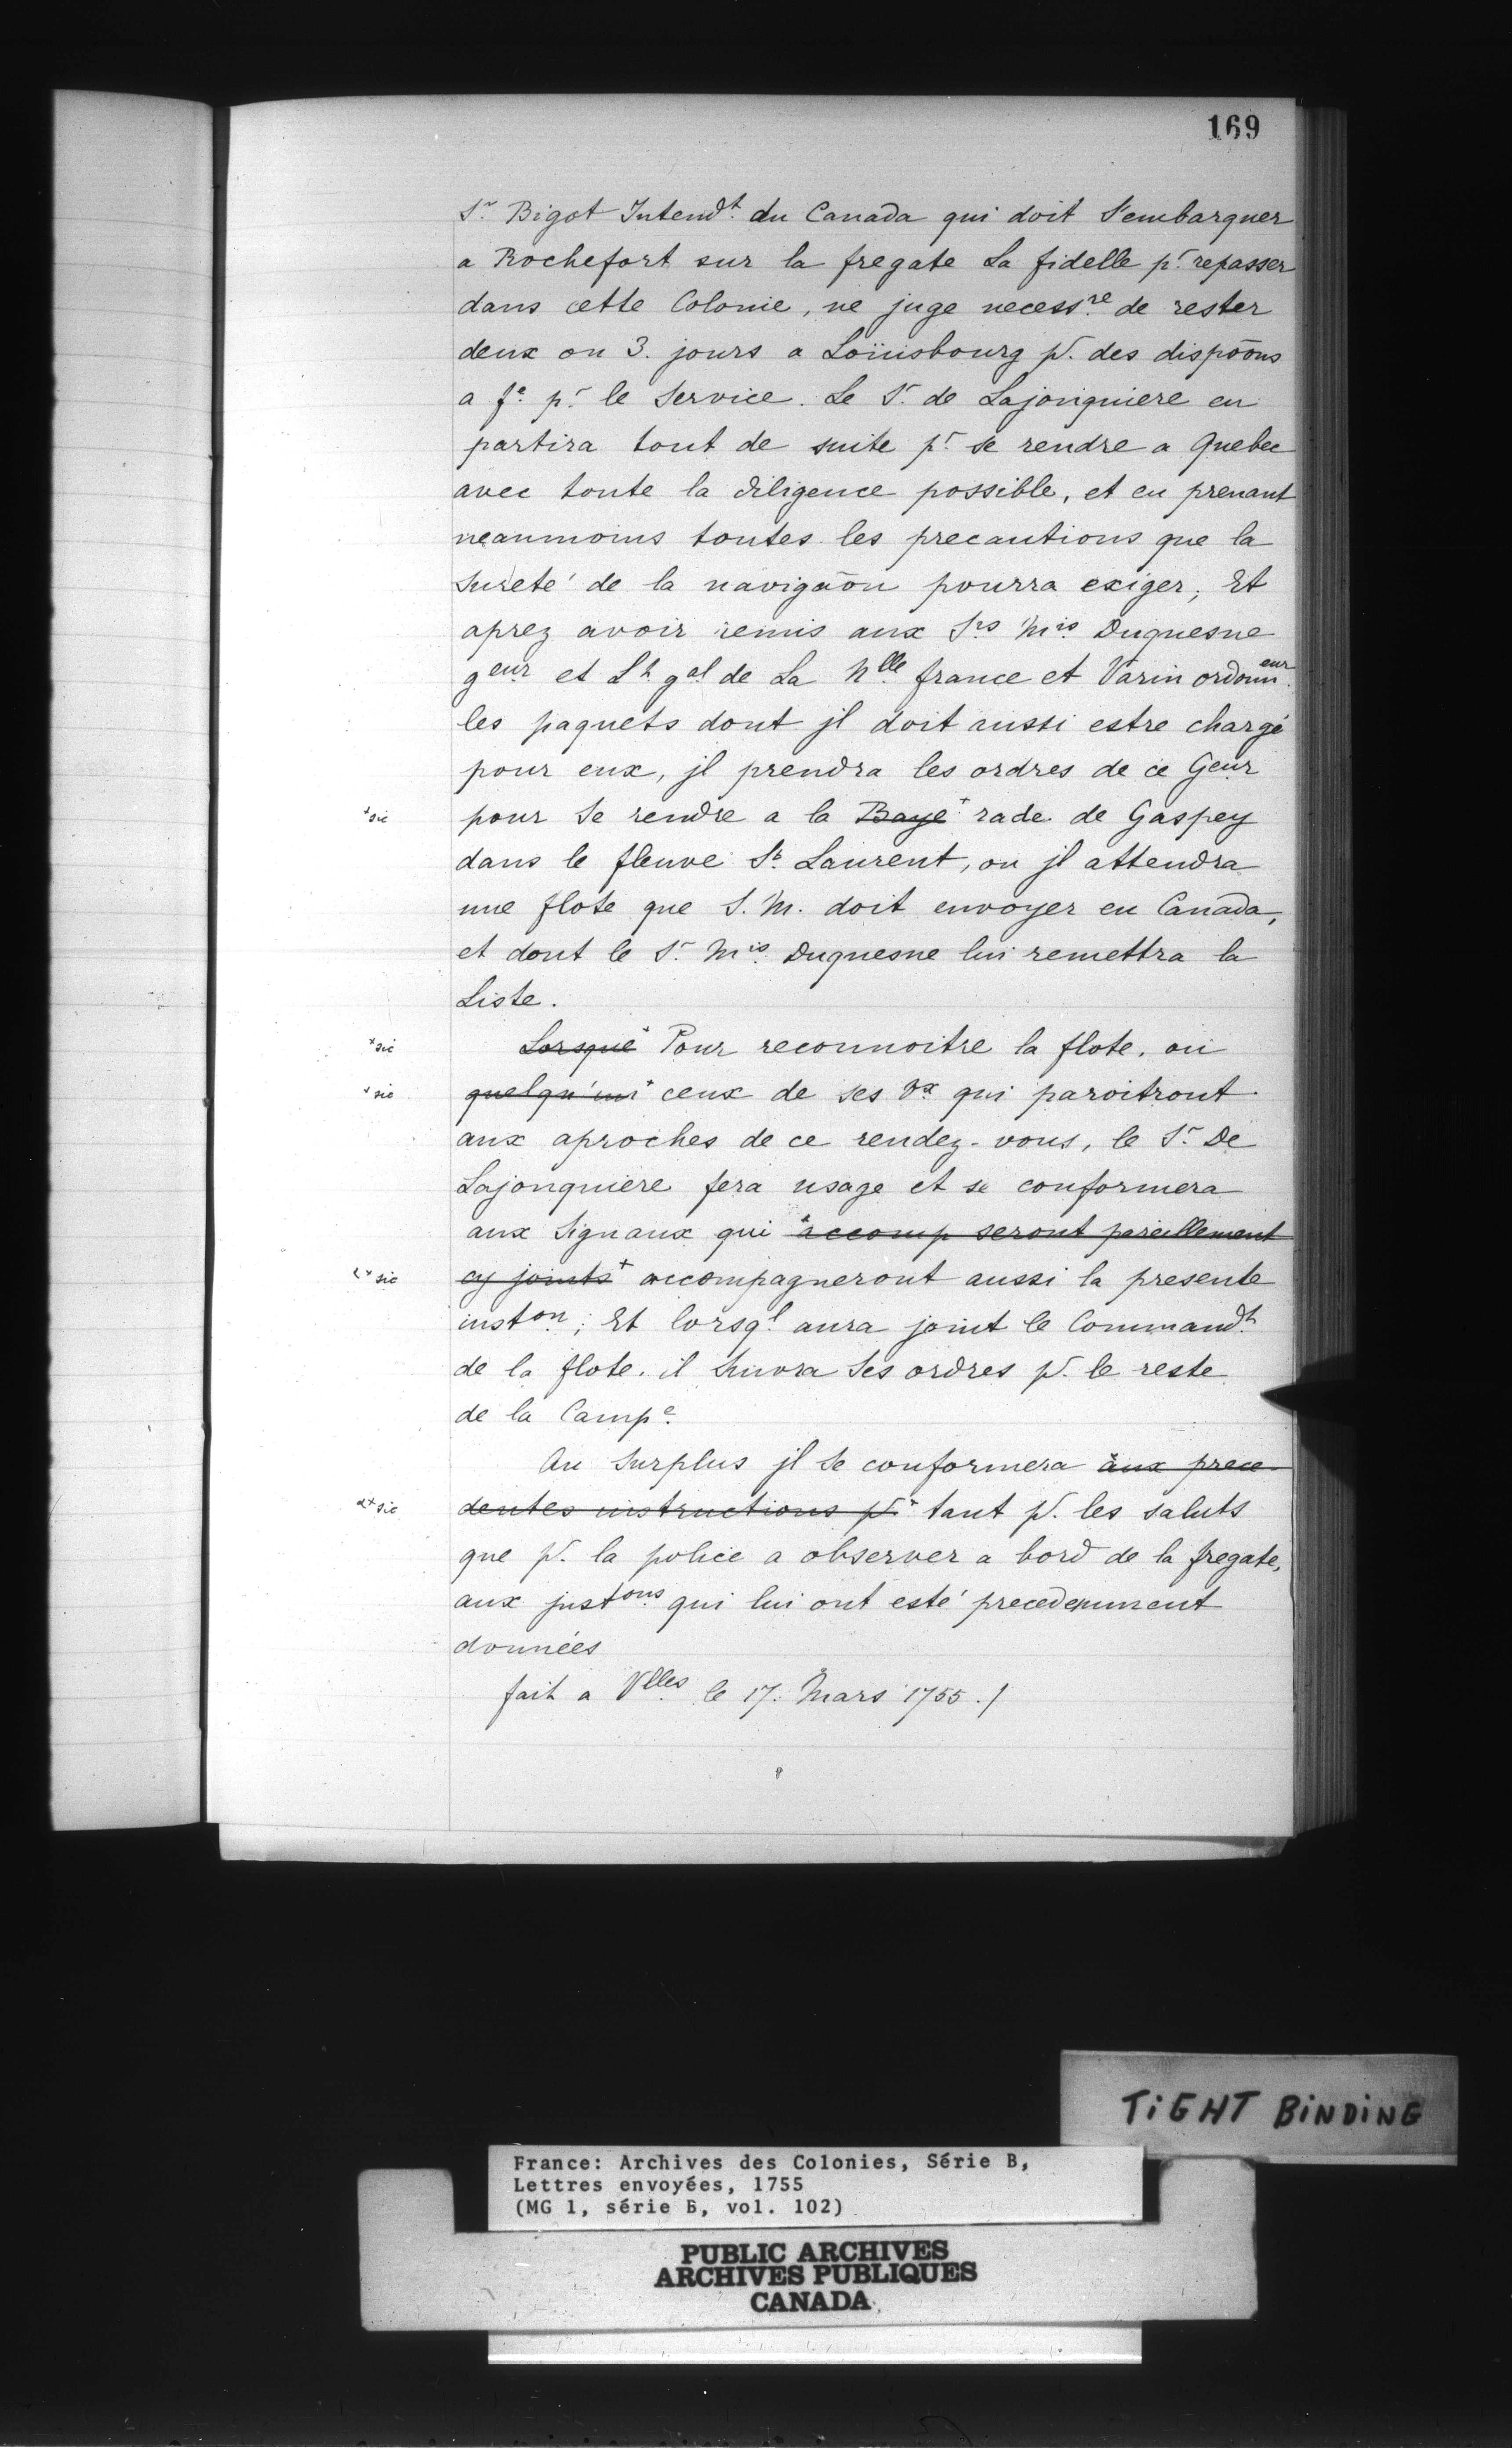 169
Sr. Bigot Intendt. du Canada qui doit s'embarquer
a Rochefort sur la fregate La fidelle pr. repasser
dans cette Colonie, ne juge necessre. de rester
deux ou 3. jours a Loüisbourg pr. des dispōons
a fe. pr. le Service. Le Sr. de Lajonquiere en
partira tout de suite pr. se rendre a Quebec
avec toute la diligence possible, et en prenant
neanmoins toutes les precautions que la
sureté de la navigāon pourra exiger; Et
aprez avoir remis aux Srs. Mis. Duquesne
geur. et Lt. gal. de La Nlle. france et Varin ordonneur.
les paquets dont jl doit aussi estre chargé
pour eux, jl prendra les ordres de ce Geur.
+sic pour se rendre a la ~~Baye~~+ rade de Gaspey
dans le fleuve St. Laurent, ou jl attendra
une flote que S. M. doit envoyer en Canada,
et dont le Sr. Mis. Duquesne lui remettra la
Liste.
+sic ~~Lorsque~~+ Pour reconnoitre la flote, ou
+sic ~~quelqu'un~~+ ceux de ses Vx. qui paroitront
aux aproches de ce rendez-vous, le Sr. De
Lajonquiere fera usage et se conformera
aux Signaux qui +~~accomp seront pareillement~~
+sic ~~cy joints~~+ accompagneront aussi la presente
inston.; Et lorsql. aura joint le Commandt.
de la flote. il Suivra Ses ordres pr. le reste
de la Campe.
Au Surplus jl se conformera +~~aux prece-~~
+sic ~~dentes instructions pr.~~+ tant pr. les saluts
que pr. la police a observer a bord de la fregate,
aux jnstons. qui lui ont esté precedemment
données
fait a Vlles. le 17. Mars 1755./
TiGHT BiNDiNG
France: Archives des Colonies, Série B,
Lettres envoyées, 1755
(MG 1, série B, vol. 102)
PUBLIC ARCHIVES
ARCHIVES PUBLIQUES
CANADA